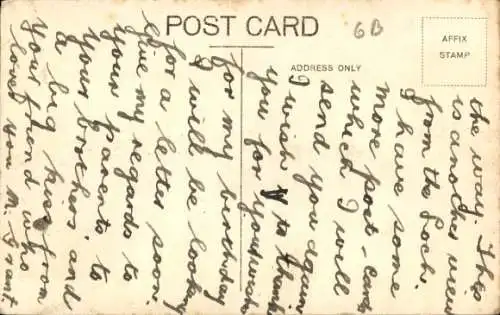 POST CARD
6B
AFFIX
STAMP
ADDRESS ONLY
the way. This
is another view
from the Loch.
I have some
more post-cards
which I will
send you again
I wish to thank
you for your wishes
for my birthday
I will be looking
for a letter soon.
Give my regards to
your parents, to
your brothers and
a big kiss from
your friend who
loves you M. Grant